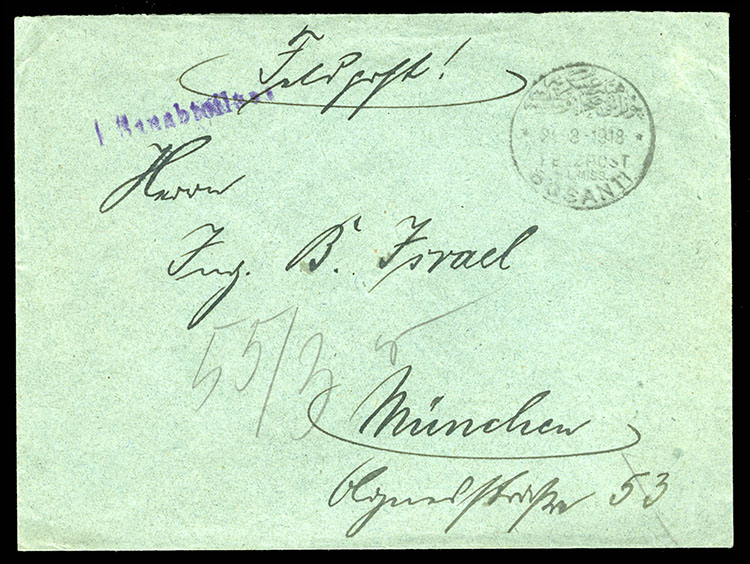 Feldpost!
8-1918
FELDPOST
MISS.
BOSANTI
Herrn
Ing. B. Israel
55/3
München
Agnesstraße 53